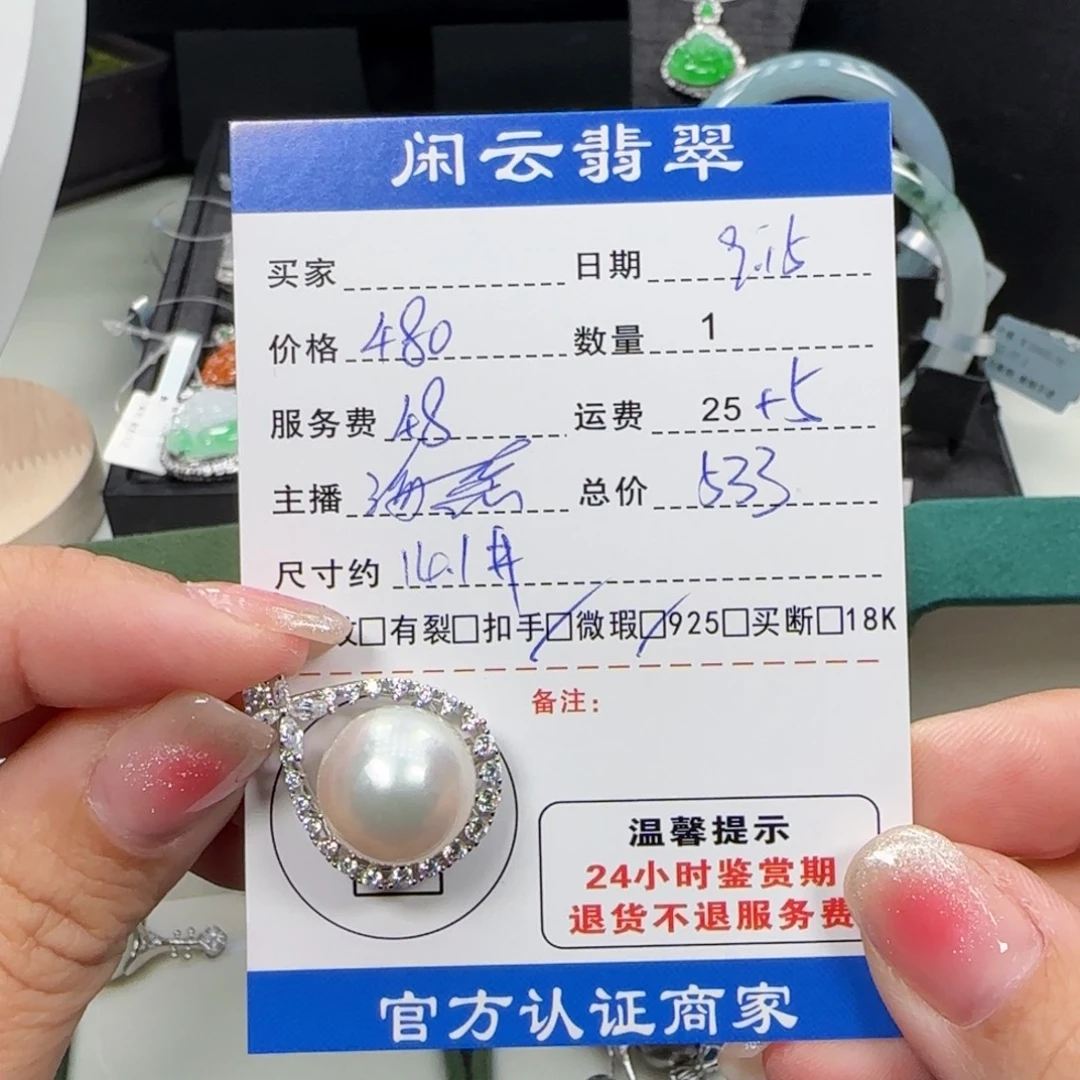 闲云翡翠
买家 日期 9.15
价格 480 数量 1
服务费 48 运费 25+5
主播 海燕 总价 533
尺寸约 14.1#
纹□有裂□扣手☑微瑕☑925□买断□18K
备注:
温馨提示
24小时鉴赏期
退货不退服务费
官方认证商家